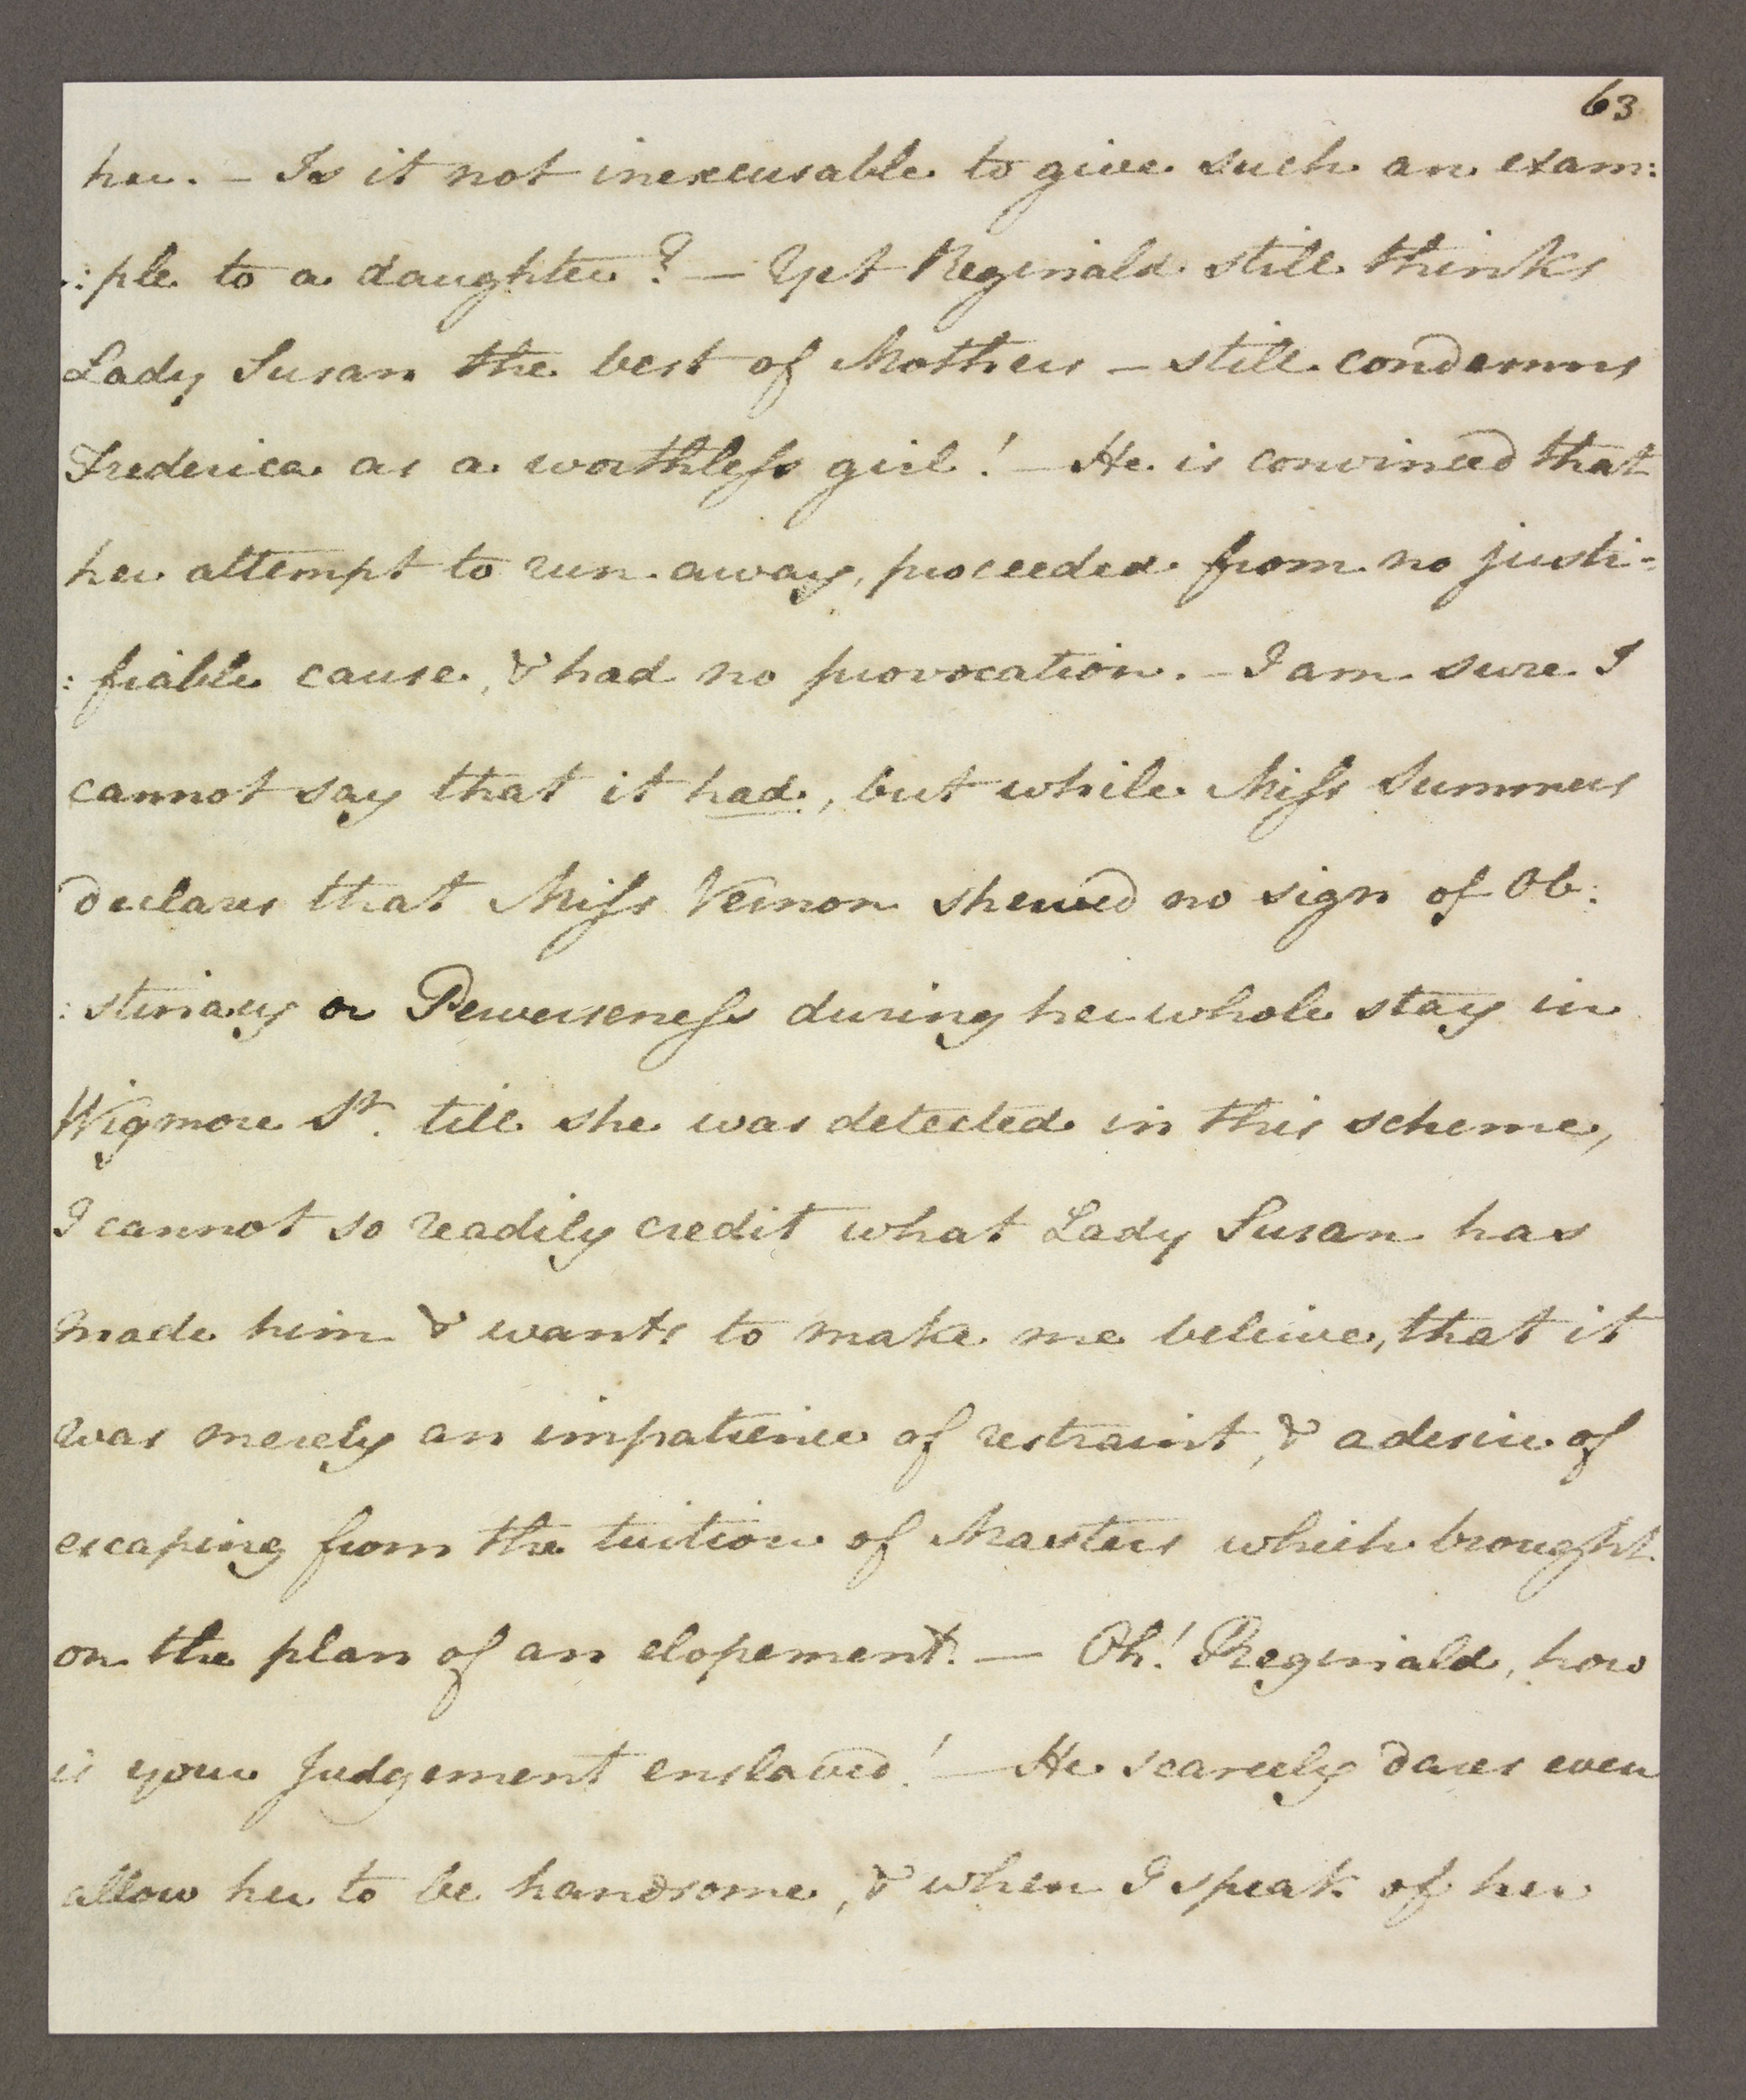 63
her. – Is it not inexcusable to give such an exam:
:ple to a daughter? – Yet Reginald still thinks
Lady Susan the best of Mothers – still condemns
Frederica as a worthless girl! – He is convinced that
her attempt to run away, proceeded from no justi-
:fiable cause, & had no provocation. – I am sure I
cannot say that it had, but while Miss Summers
declares that Miss Vernon shewed no sign of Ob:
:stinacy or Perverseness during her whole stay in
Wigmore St. till she was detected in this scheme,
I cannot so readily credit what Lady Susan has
made him & wants to make me beleive, that it
was merely an impatience of restraint, & a desire of
escaping from the tuition of Masters which brought
on the plan of an elopement. – Oh! Reginald, how
is your Judgement enslaved! – He scarcely dares even
allow her to be handsome, & when I speak of her